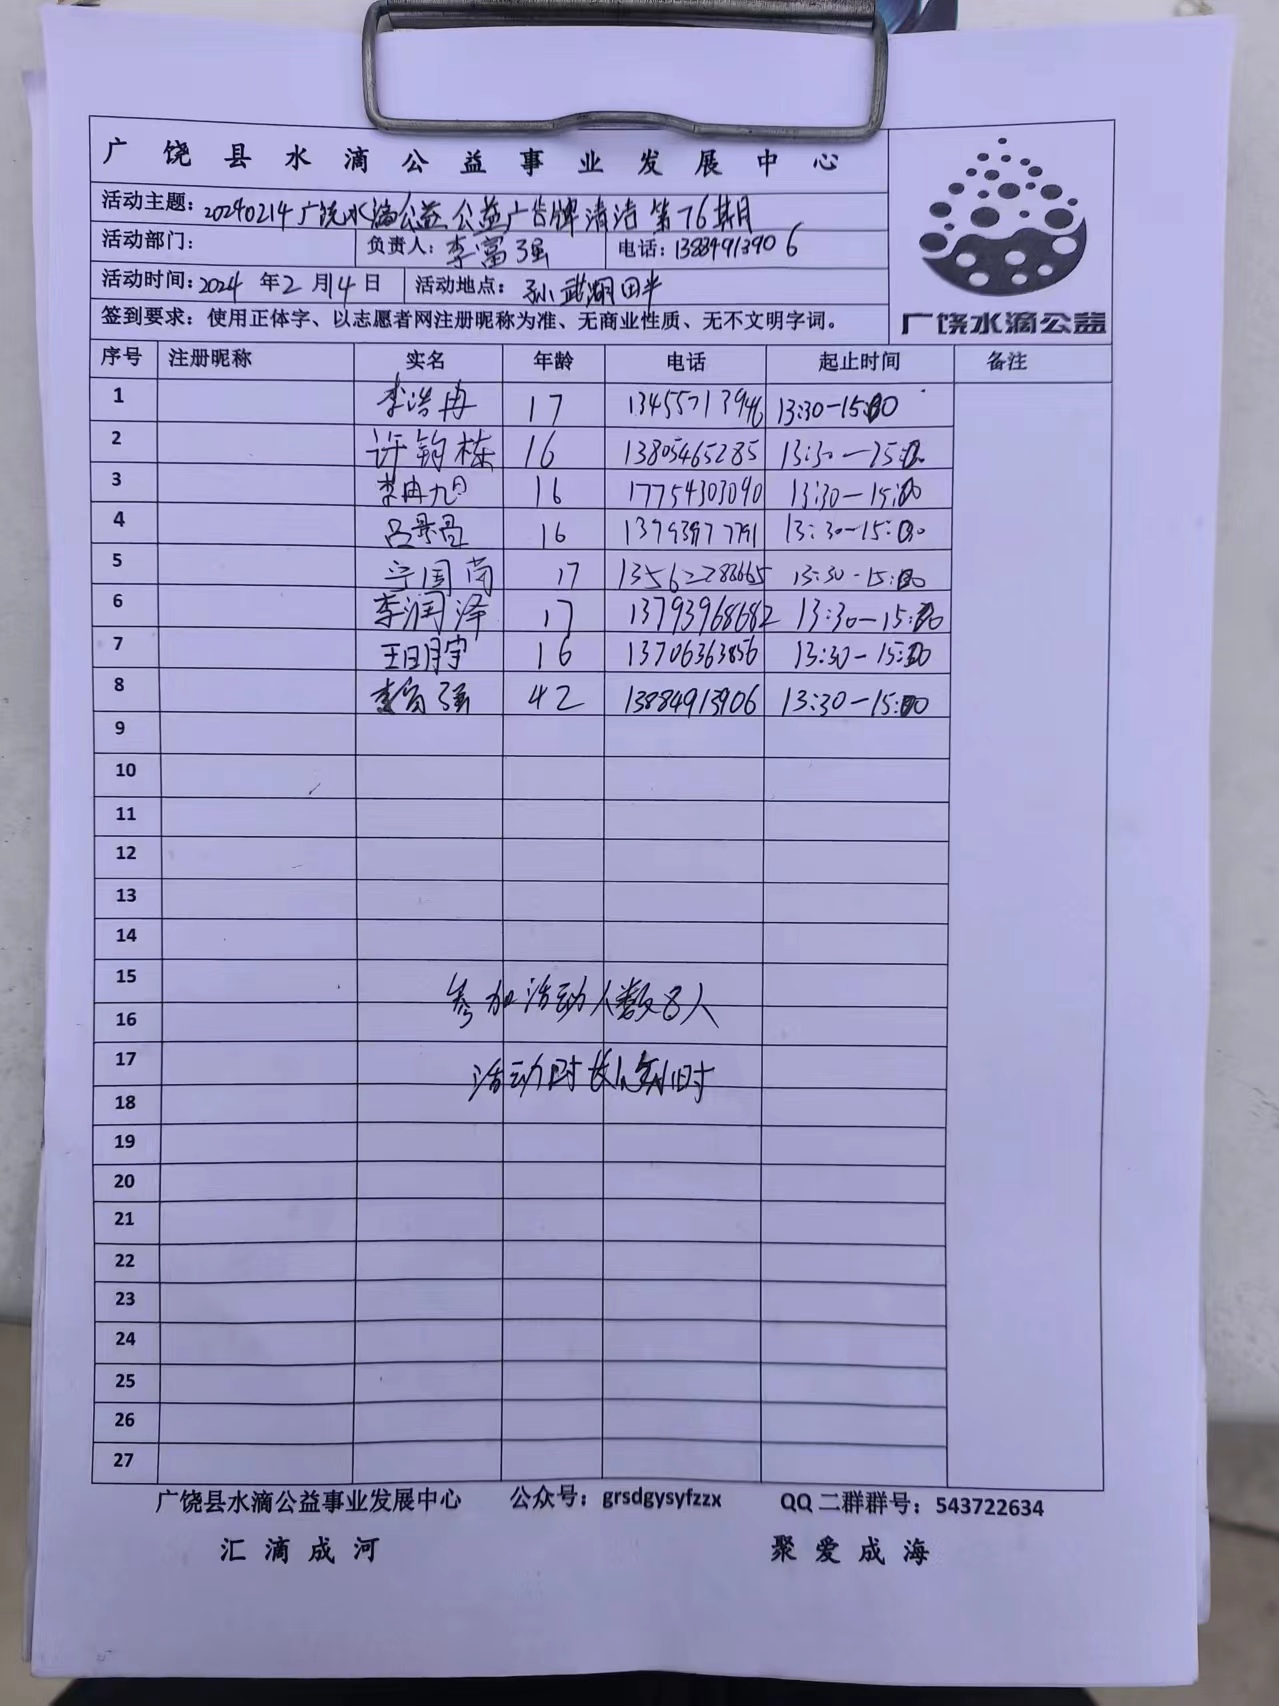 广饶县水滴公益事业发展中心
活动主题：20240214广饶水滴公益公益广告牌清洁第76期
活动部门： 负责人：李富强 电话：13884913906
活动时间：2024年2月14日 活动地点：孙武湖田半
签到要求：使用正体字、以志愿者网注册昵称为准、无商业性质、无不文明字词。
广饶水滴公益
序号 注册昵称 实名 年龄 电话 起止时间 备注
1 李浩冉 17 13455713946 13:30-15:00
2 许钧栋 16 13805465285 13:30-15:00
3 李冉旭 16 17754303090 13:30-15:00
4 吕景亮 16 13:30-15:00
5 宁国 17 13562288665 13:30-15:00
6 李润泽 17 13793968682 13:30-15:00
7 王明宇 16 13706363856 13:30-15:00
8 李富强 42 13884913906 13:30-15:00
9
10
11
12
13
14
15
参加活动人数8人
16
17
活动时长1.5小时
18
19
20
21
22
23
24
25
26
27
广饶县水滴公益事业发展中心 公众号：grsdgysyfzzx QQ二群群号：543722634
汇滴成河 聚爱成海